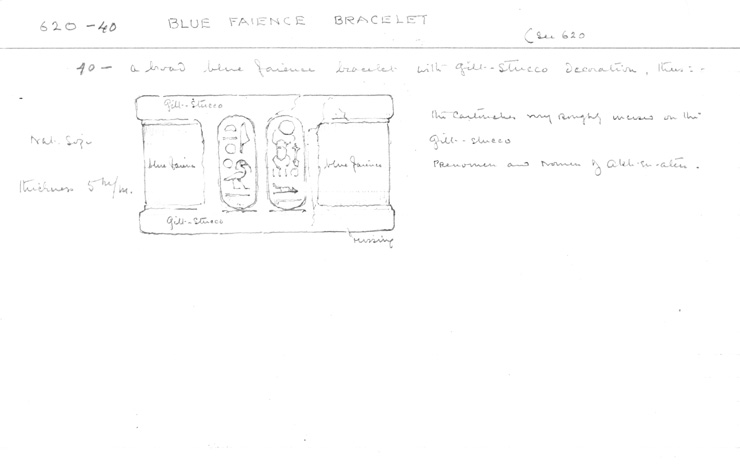 620-40 BLUE FAIENCE BRACELET
(See 620
40- a broad blue faience bracelet with gilt-stucco decoration, thus:-
Gilt-Stucco
Nat. Size
blue faience
blue faience
thickness 5 m/m.
Gilt-Stucco
missing
The Cartouches very roughly incised on the
gilt-stucco
Prenomen and nomen of Akh-en-aten.